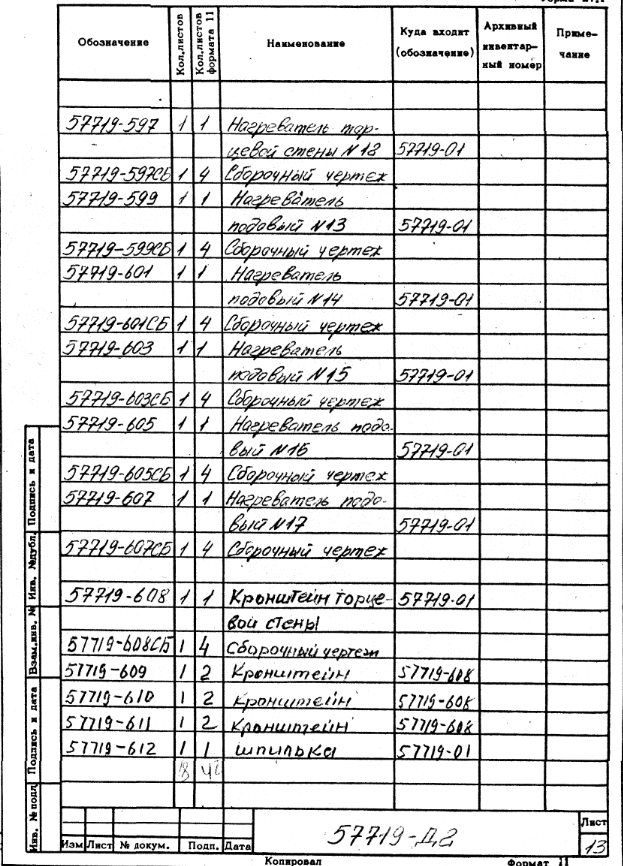 Обозначение Кол.листов Кол.листов формата 11 Наименование Куда входит (обозначение) Архивный инвентарный номер Примечание
57719-597 1 1 Нагреватель тор-
цевой стены N18 57719-01
57719-597СБ 1 4 Сборочный чертеж
57719-599 1 1 Нагреватель
подовый N13 57719-01
57719-599СБ 1 4 Сборочный чертеж
57719-601 1 1 Нагреватель
подовый N14 57719-01
57719-601СБ 1 4 Сборочный чертеж
57719-603 1 1 Нагреватель
подовый N15 57719-01
57719-603СБ 1 4 Сборочный чертеж
57719-605 1 1 Нагреватель подо-
вый N16 57719-01
57719-605СБ 1 4 Сборочный чертеж
57719-607 1 1 Нагреватель подо-
вый N17 57719-01
57719-607СБ 1 4 Сборочный чертеж
57719-608 1 1 Кронштейн торце- 57719-01
вой стены
57719-608СБ 1 4 Сборочный чертеж
57719-609 1 2 Кронштейн 57719-608
57719-610 1 2 Кронштейн 57719-608
57719-611 1 2 Кронштейн 57719-608
57719-612 1 1 шпилька 57719-01
18 42
Инв. № подл. Подпись и дата Взам.инв. № Инв. №дубл. Подпись и дата
57719-Д2
Лист
13
Изм Лист № докум. Подп. Дата
Копировал Формат 11